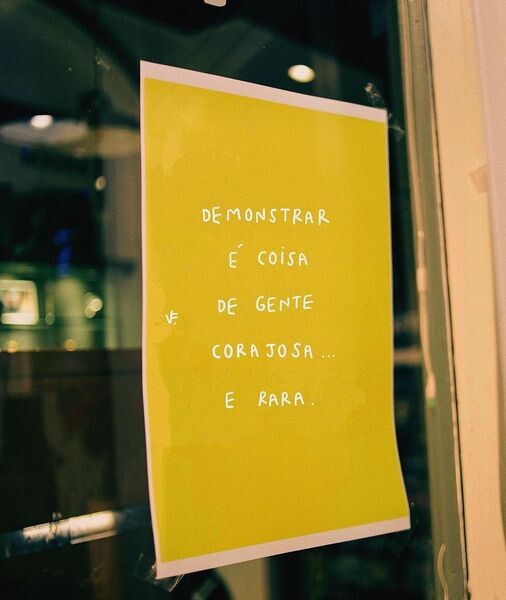 DEMONSTRAR
É COISA
DE GENTE
VF.
CORAJOSA...
E RARA.